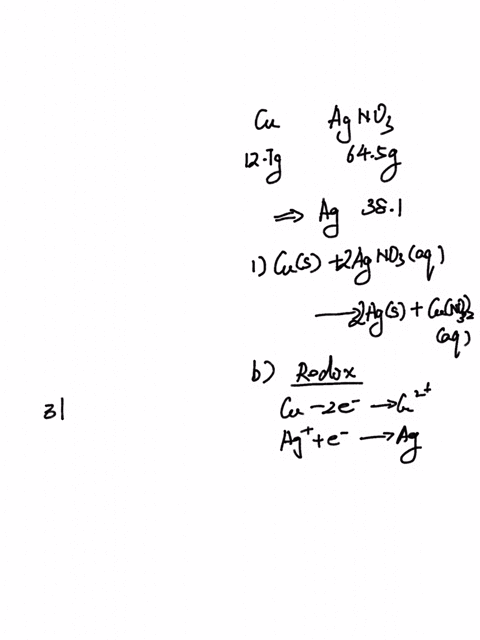 Cu AgNO3
12.7g 64.5g
⇒ Ag 38.1
1) Cu(s) + 2AgNO3(aq)
→ 2Ag(s) + Cu(NO3)2
(aq)
b) Redox
Cu - 2e- → Cu2+
31
Ag+ + e- → Ag